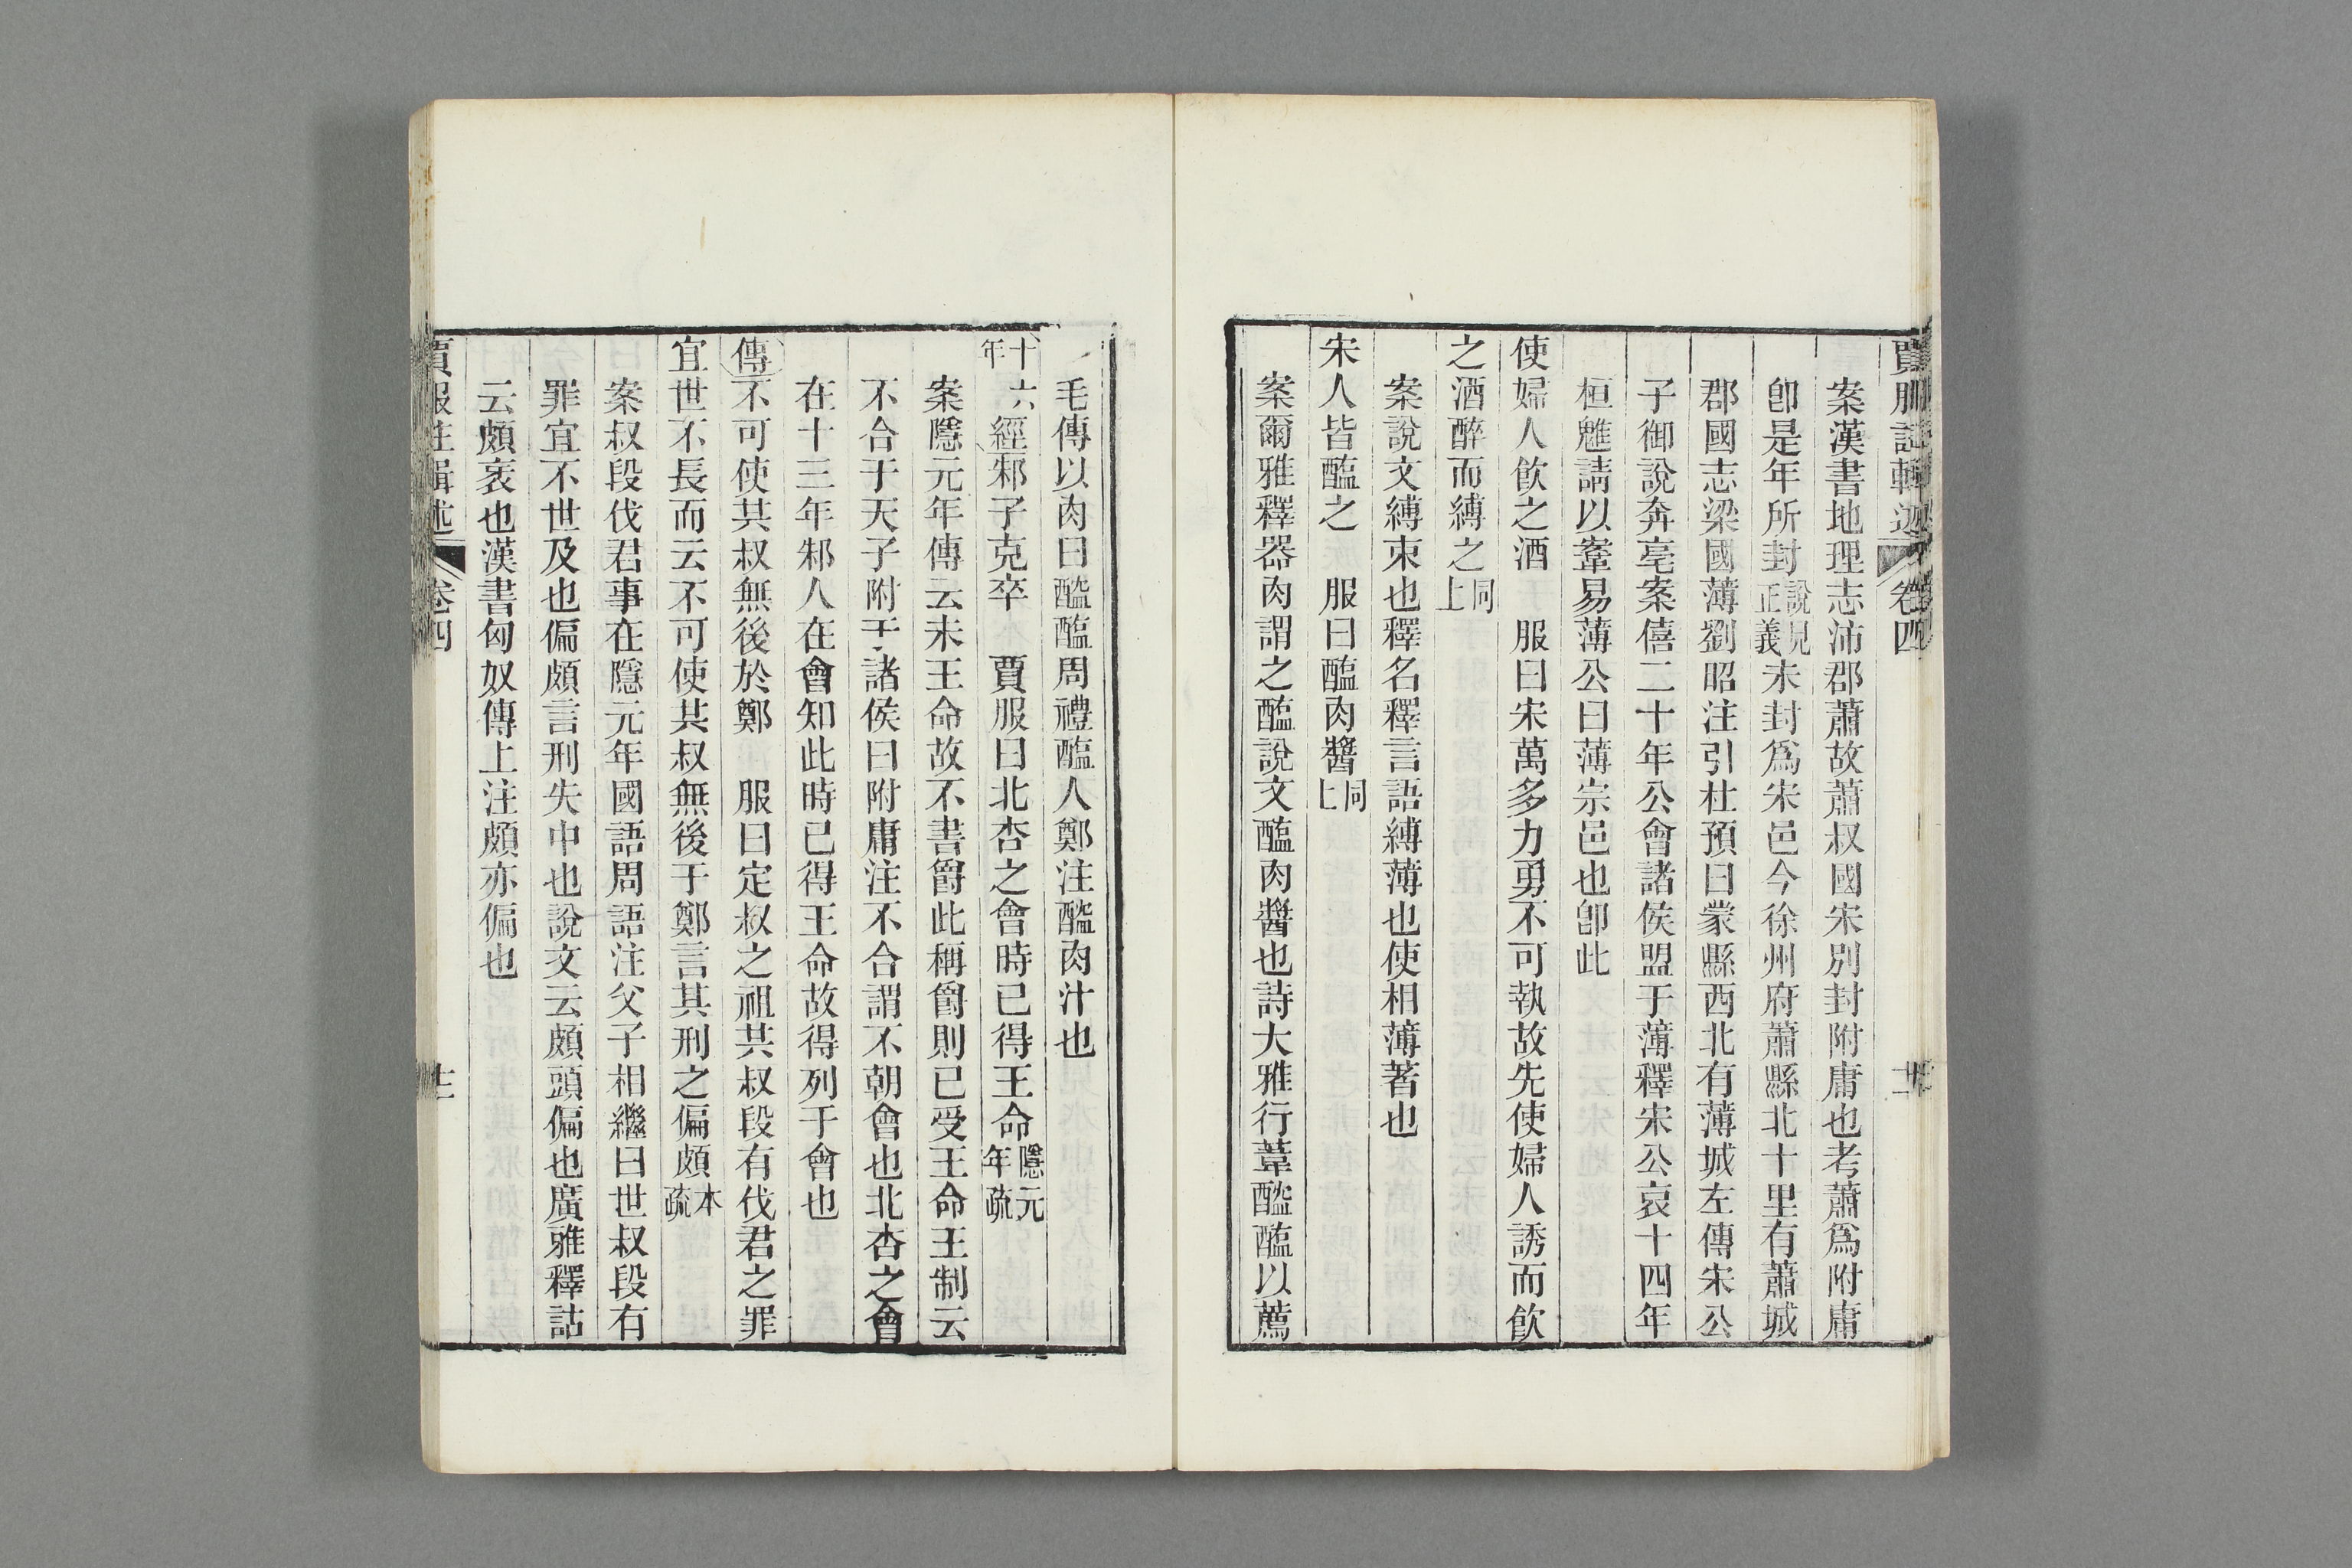 賈服註輯述 卷四
案漢書地理志沛郡蕭故蕭叔國宋別封附庸也考蕭爲附庸
卽是年所封說見正義未封爲宋邑今徐州府蕭縣北十里有蕭城
郡國志梁國薄劉昭注引杜預曰蒙縣西北有薄城左傳宋公
子御說奔亳案僖二十年公會諸侯盟于薄釋宋公哀十四年
桓魋請以鞌易薄公曰薄宗邑也卽此
使婦人飮之酒 服曰宋萬多力勇不可執故先使婦人誘而飮
之酒醉而縛之同上
案說文縛束也釋名釋言語縛薄也使相薄著也
宋人皆醢之 服曰醢肉醬同上
案爾雅釋器肉謂之醢說文醢肉醬也詩大雅行葦醓醢以薦
毛傳以肉曰醓醢周禮醢人鄭注醓肉汁也
十六年經邾子克卒 賈服曰北杏之會時已得王命隱元年疏
案隱元年傳云未王命故不書爵此稱爵則已受王命王制云
不合于天子附于諸侯曰附庸注不合謂不朝會也北杏之會
在十三年邾人在會知此時已得王命故得列于會也
傳不可使共叔無後於鄭 服曰定叔之祖共叔段有伐君之罪
宜世不長而云不可使共叔無後于鄭言其刑之偏頗本疏
案叔段伐君事在隱元年國語周語注父子相繼曰世叔段有
罪宜不世及也偏頗言刑失中也說文云頗頭偏也廣雅釋詁
云頗衺也漢書匈奴傳上注頗亦偏也
賈服註輯述 卷四